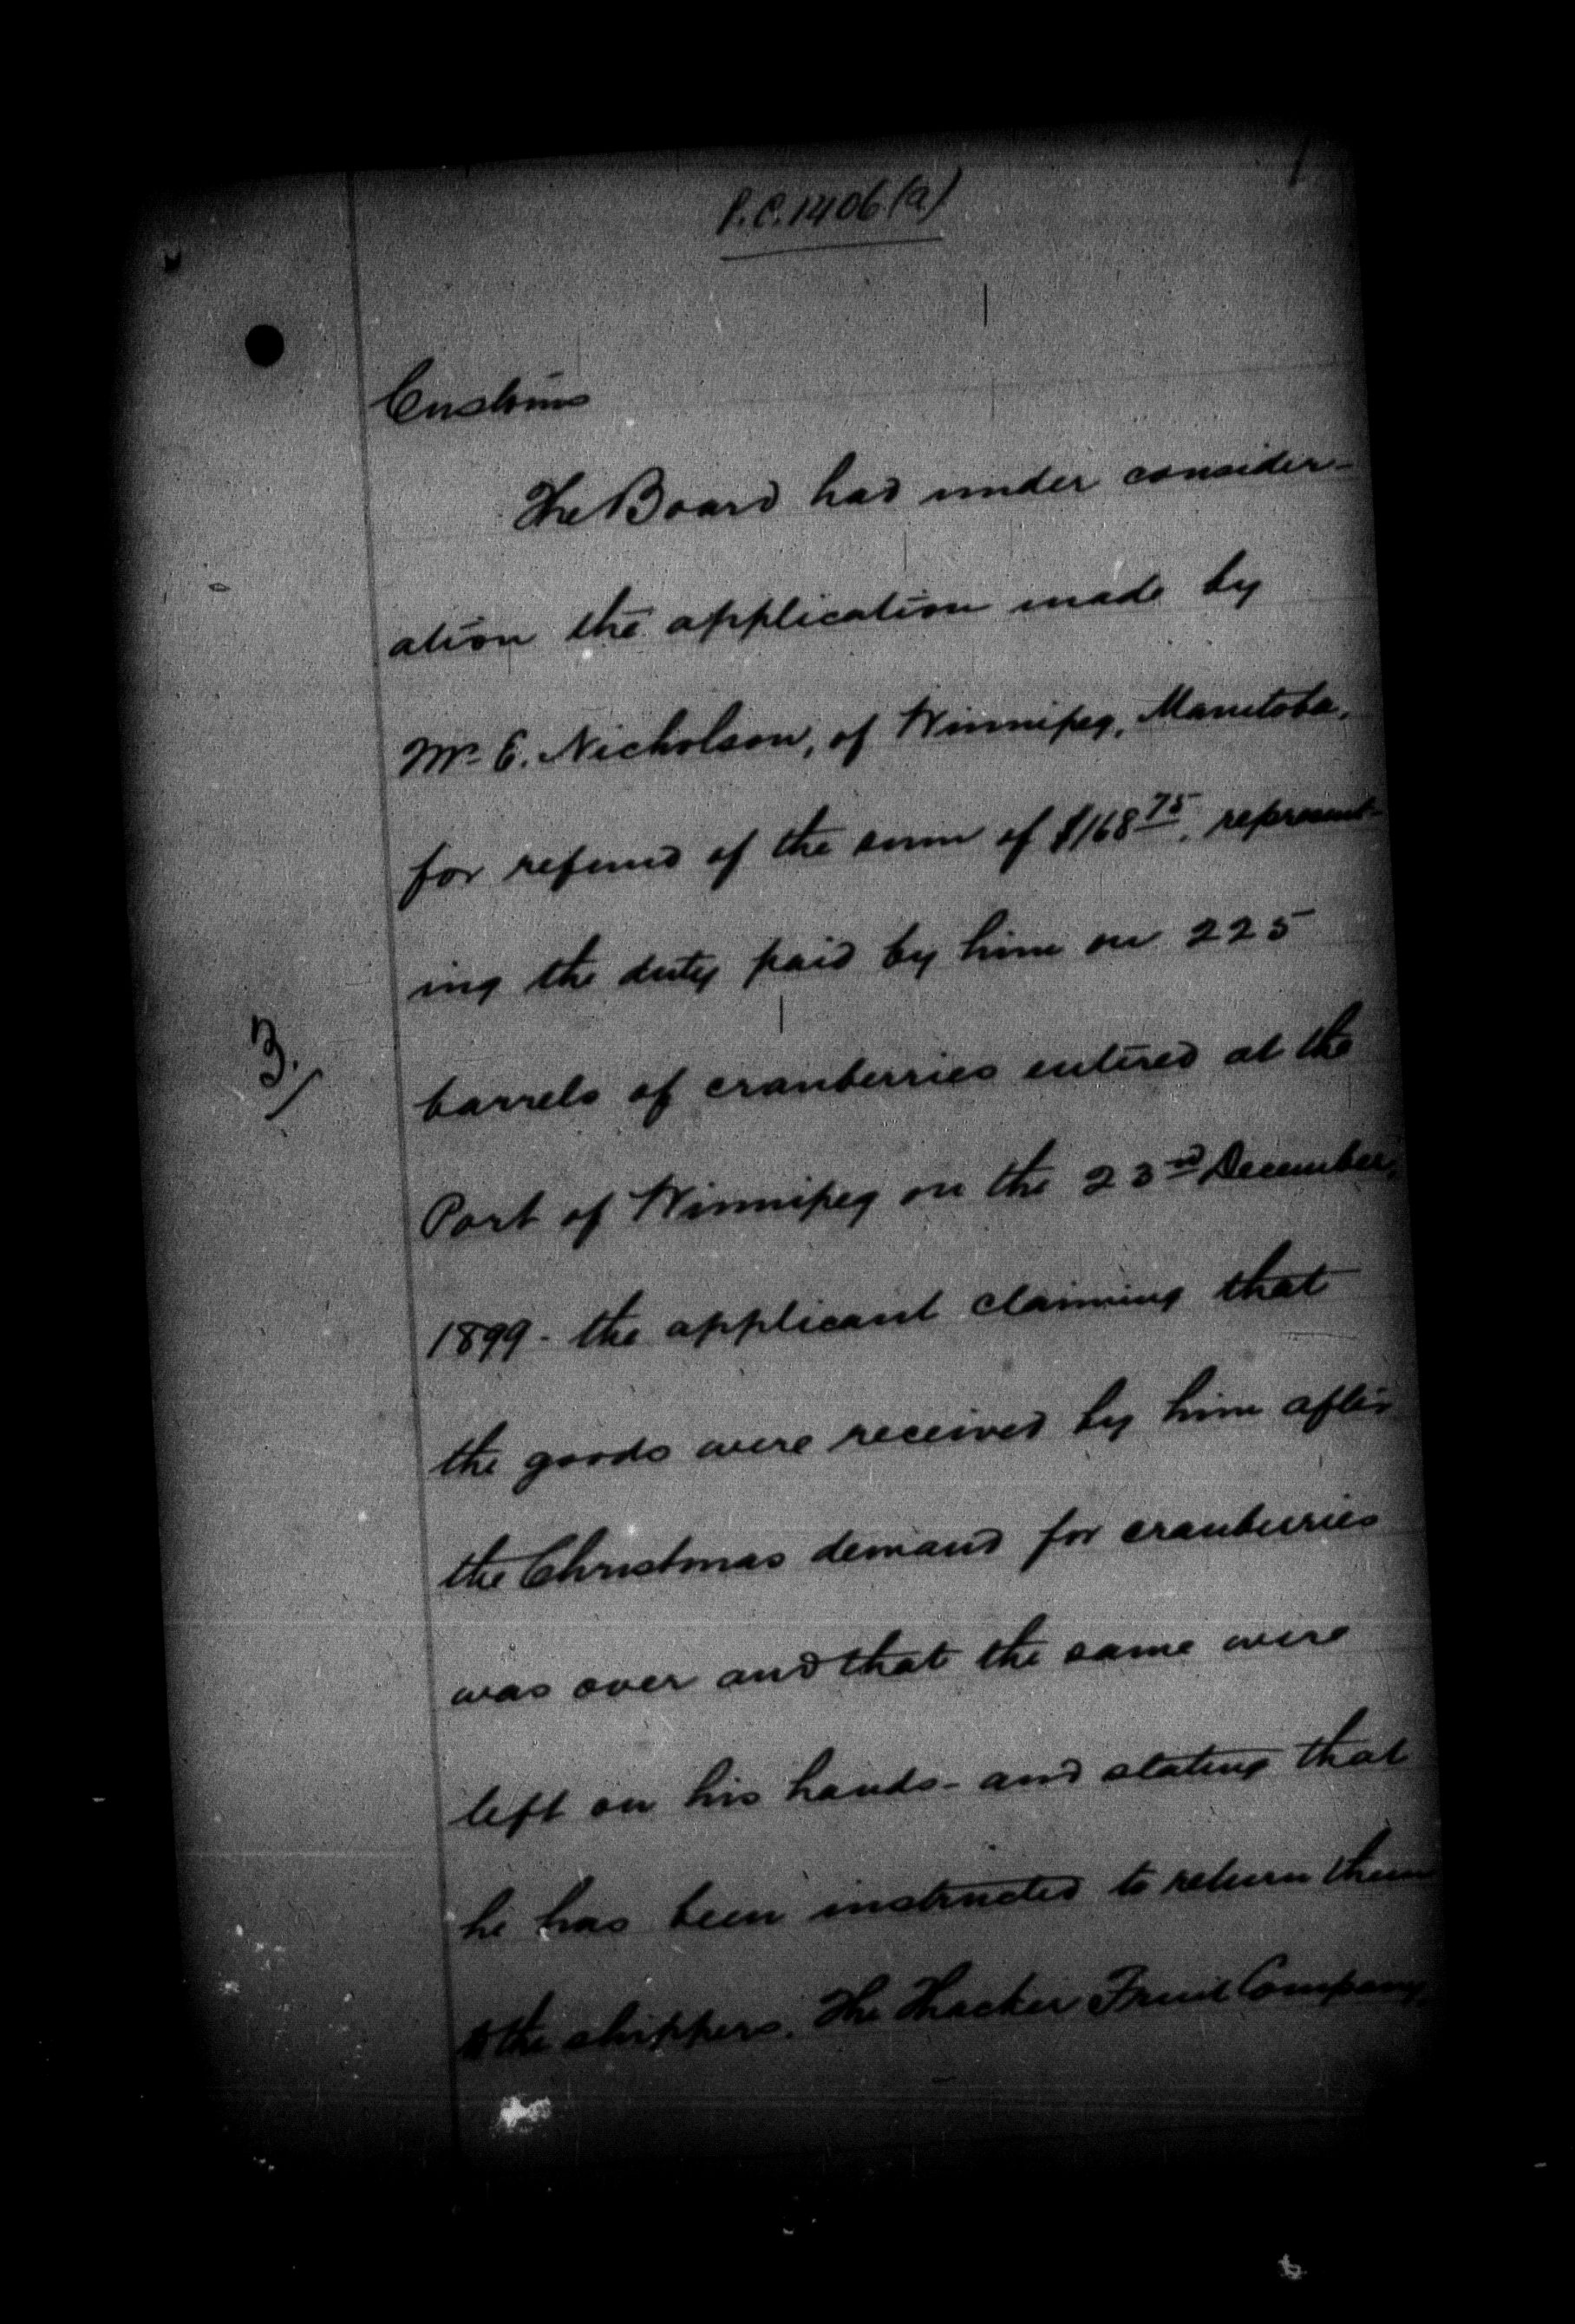 P.C. 1406 (a)
Customs
The Board had under consider-
ation the application made by
Mr. E. Nicholson, of Winnipeg, Manitoba,
for refund of the sum of $168 75, represent-
ing the duty paid by him on 225
barrels of cranberries entered at the
3.
Port of Winnipeg on the 23rd December,
1899 - the applicant claiming that
the goods were received by him after
the Christmas demand for cranberries
was over and that the same were
left on his hands - and stating that
he has been instructed to return them
to the shippers, The Thacker Fruit Company,